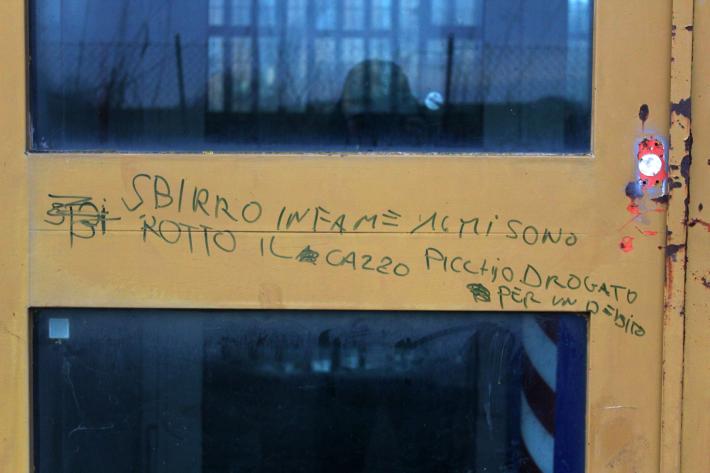 SBIRRO INFAME MI SONO
ROTTO IL CAZZO PICCHIO DROGATO
PER UN DEBITO